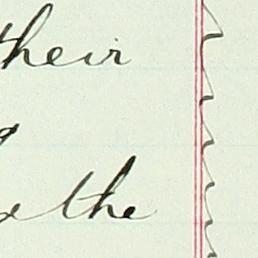 their
the